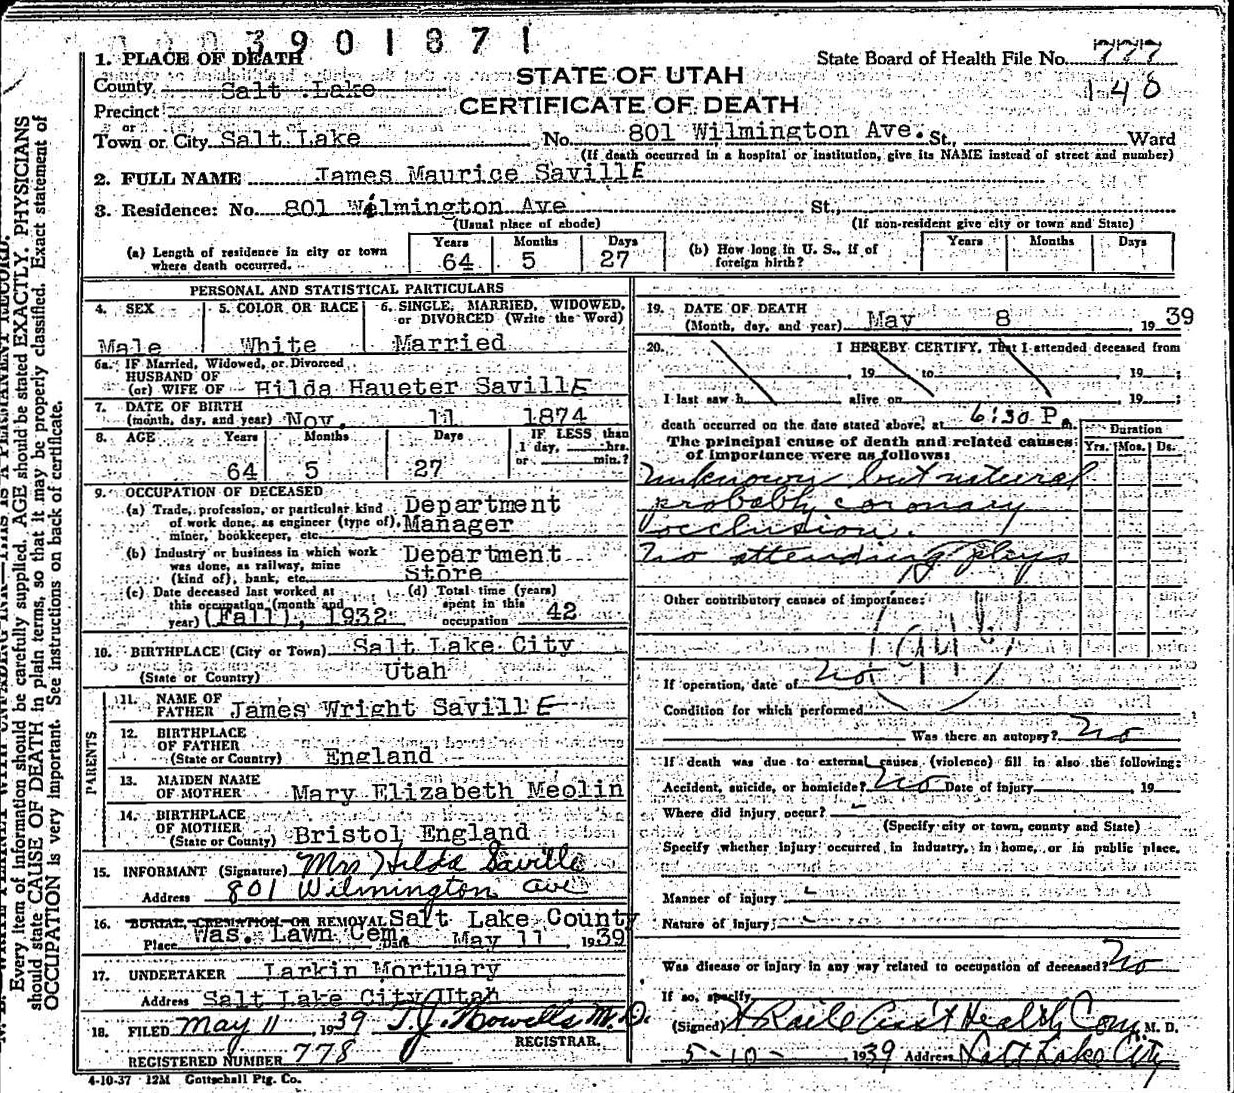 3901871
1. PLACE OF DEATH
State Board of Health File No. 777
STATE OF UTAH
County Salt Lake
148
Precinct
CERTIFICATE OF DEATH
or
Town or City Salt Lake No. 801 Wilmington Ave. St., Ward
(If death occurred in a hospital or institution, give its NAME instead of street and number)
2. FULL NAME James Maurice SavillE
3. Residence: No. 801 Wilmington Ave St.,
(Usual place of abode) (If non-resident give city or town and State)
(a) Length of residence in city or town where death occurred. Years 64 Months 5 Days 27
(b) How long in U. S., if of foreign birth? Years Months Days
PERSONAL AND STATISTICAL PARTICULARS
4. SEX Male
5. COLOR OR RACE White
6. SINGLE, MARRIED, WIDOWED, or DIVORCED (Write the Word) Married
6a. IF Married, Widowed, or Divorced
HUSBAND OF
(or) WIFE OF Hilda Haueter SavillE
7. DATE OF BIRTH
(month, day, and year) Nov. 11 1874
8. AGE Years 64 Months 5 Days 27 IF LESS than 1 day, hrs. or min.?
9. OCCUPATION OF DECEASED
(a) Trade, profession, or particular kind of work done, as engineer (type of), miner, bookkeeper, etc. Department Manager
(b) Industry or business in which work was done, as railway, mine (kind of), bank, etc. Department Store
(c) Date deceased last worked at this occupation (month and year) (Fall), 1932
(d) Total time (years) spent in this occupation 42
10. BIRTHPLACE (City or Town) Salt Lake City
(State or Country) Utah
PARENTS
11. NAME OF FATHER James Wright SavillE
12. BIRTHPLACE OF FATHER
(State or Country) England
13. MAIDEN NAME OF MOTHER Mary Elizabeth Meolin
14. BIRTHPLACE OF MOTHER
(State or Country) Bristol England
15. INFORMANT (Signature) Mrs Hilda Saville
Address 801 Wilmington Ave
16. BURIAL, CREMATION OR REMOVAL Salt Lake County
Place Was. Lawn Cem. Date May 11, 1939
17. UNDERTAKER Larkin Mortuary
Address Salt Lake City Utah
18. FILED May 11 1939 T.J. Howells M.D.
REGISTRAR.
REGISTERED NUMBER 778
4-10-37 12M Gottschall Ptg. Co.
19. DATE OF DEATH
(Month, day, and year) May 8 1939
20. I HEREBY CERTIFY, That I attended deceased from
, 19 to , 19 ;
I last saw h alive on , 19 ;
death occurred on the date stated above, at 6:30 P m.
The principal cause of death and related causes of importance were as follows:
Duration
Yrs. Mos. Ds.
Unknown but natural
probably coronary
occlusion.
No attending phys
Other contributory causes of importance:
94
If operation, date of No
Condition for which performed
Was there an autopsy? No
If death was due to external causes (violence) fill in also the following:
Accident, suicide, or homicide? No Date of injury 19
Where did injury occur?
(Specify city or town, county and State)
Specify whether injury occurred in industry, in home, or in public place.
Manner of injury
Nature of injury
Was disease or injury in any way related to occupation of deceased? No
If so, specify
(Signed) Ass't Health Com. M. D.
5-10- 1939 Address Salt Lake City
Every item of information should be carefully supplied. AGE should be stated EXACTLY. PHYSICIANS
should state CAUSE OF DEATH in plain terms, so that it may be properly classified. Exact statement of
OCCUPATION is very important. See Instructions on back of certificate.